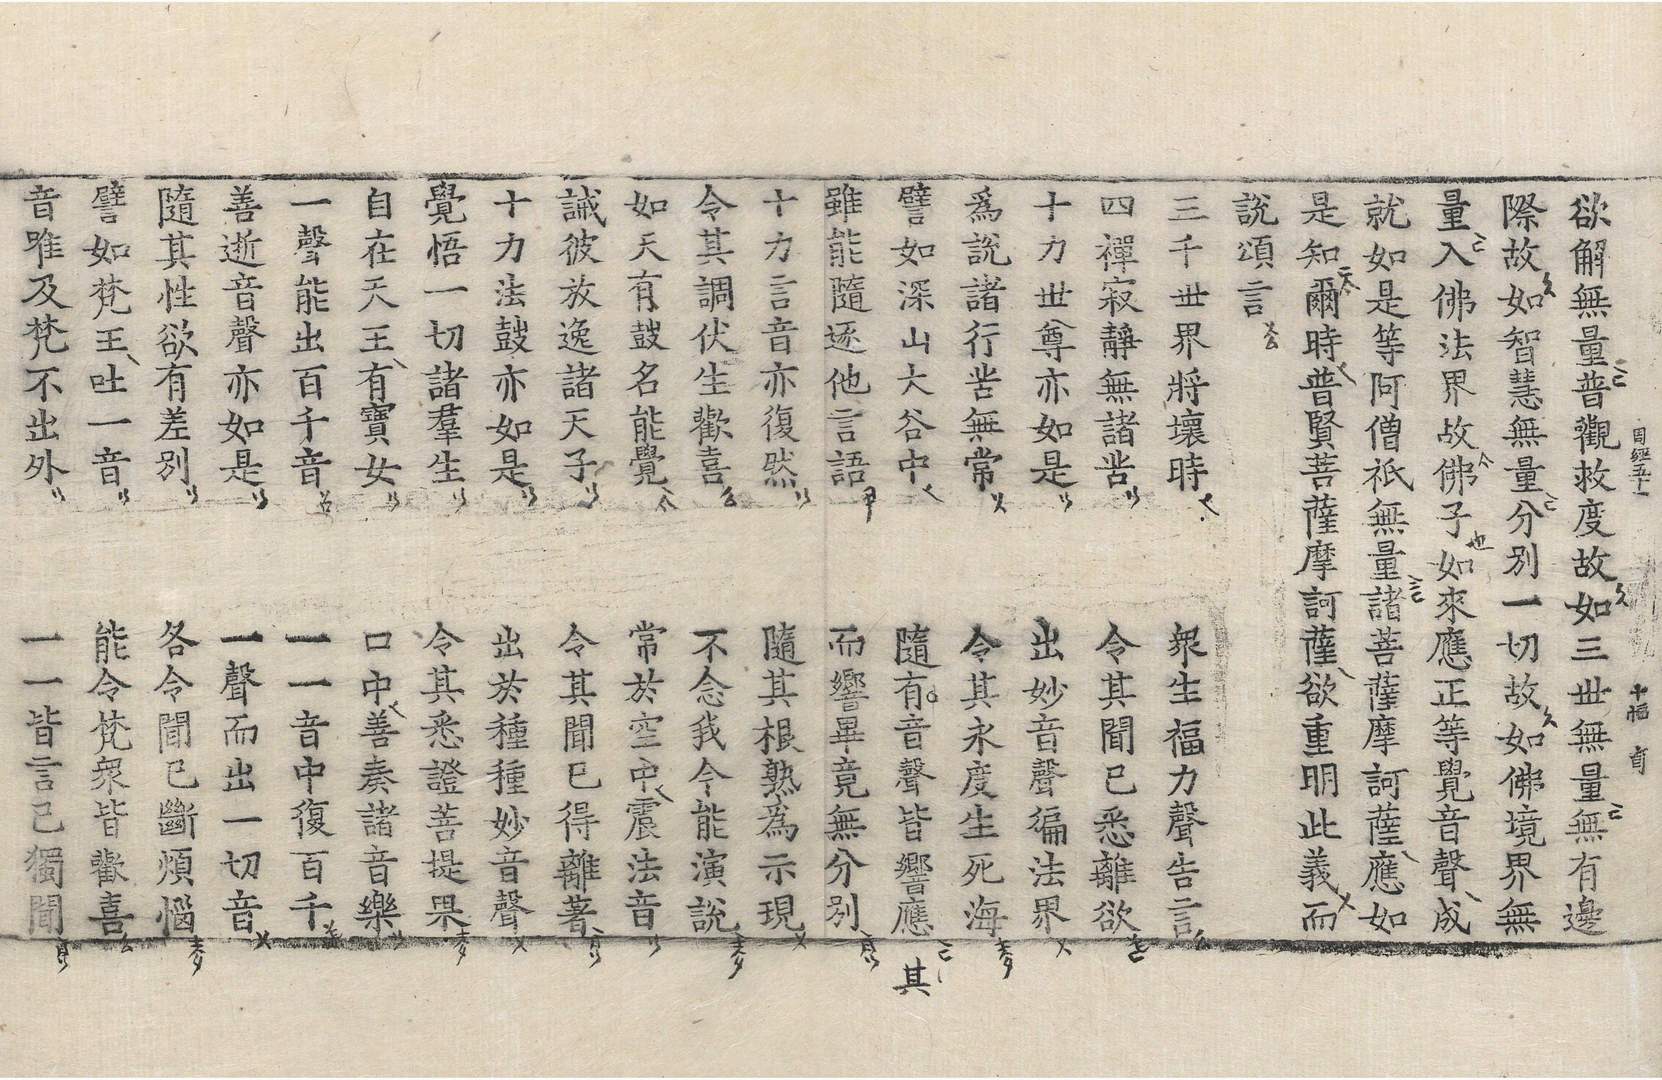 欲解無量普觀救度故如三世無量無有邊
際故如智慧無量分別一切故如佛境界無
量入佛法界故佛子如來應正等覺音聲成
就如是等阿僧祇無量諸菩薩摩訶薩應如
是知爾時普賢菩薩摩訶薩欲重明此義而
說頌言
三千世界將壞時 衆生福力聲告言
四禪寂靜無諸苦 令其聞已悉離欲
十力世尊亦如是 出妙音聲徧法界
爲說諸行苦無常 令其永度生死海
譬如深山大谷中 隨有音聲皆響應
雖能隨逐他言語 而響畢竟無分別
十力言音亦復然 隨其根熟爲示現
令其調伏生歡喜 不念我今能演說
如天有鼓名能覺 常於空中震法音
誡彼放逸諸天子 令其聞已得離著
十力法鼓亦如是 出於種種妙音聲
覺悟一切諸羣生 令其悉證菩提果
自在天王有寶女 口中善奏諸音樂
一聲能出百千音 一一音中復百千
善逝音聲亦如是 一聲而出一切音
隨其性欲有差別 各令聞已斷煩惱
譬如梵王吐一音 能令梵衆皆歡喜
音唯及梵不出外 一一皆言己獨聞
周經五十一 十幅
其